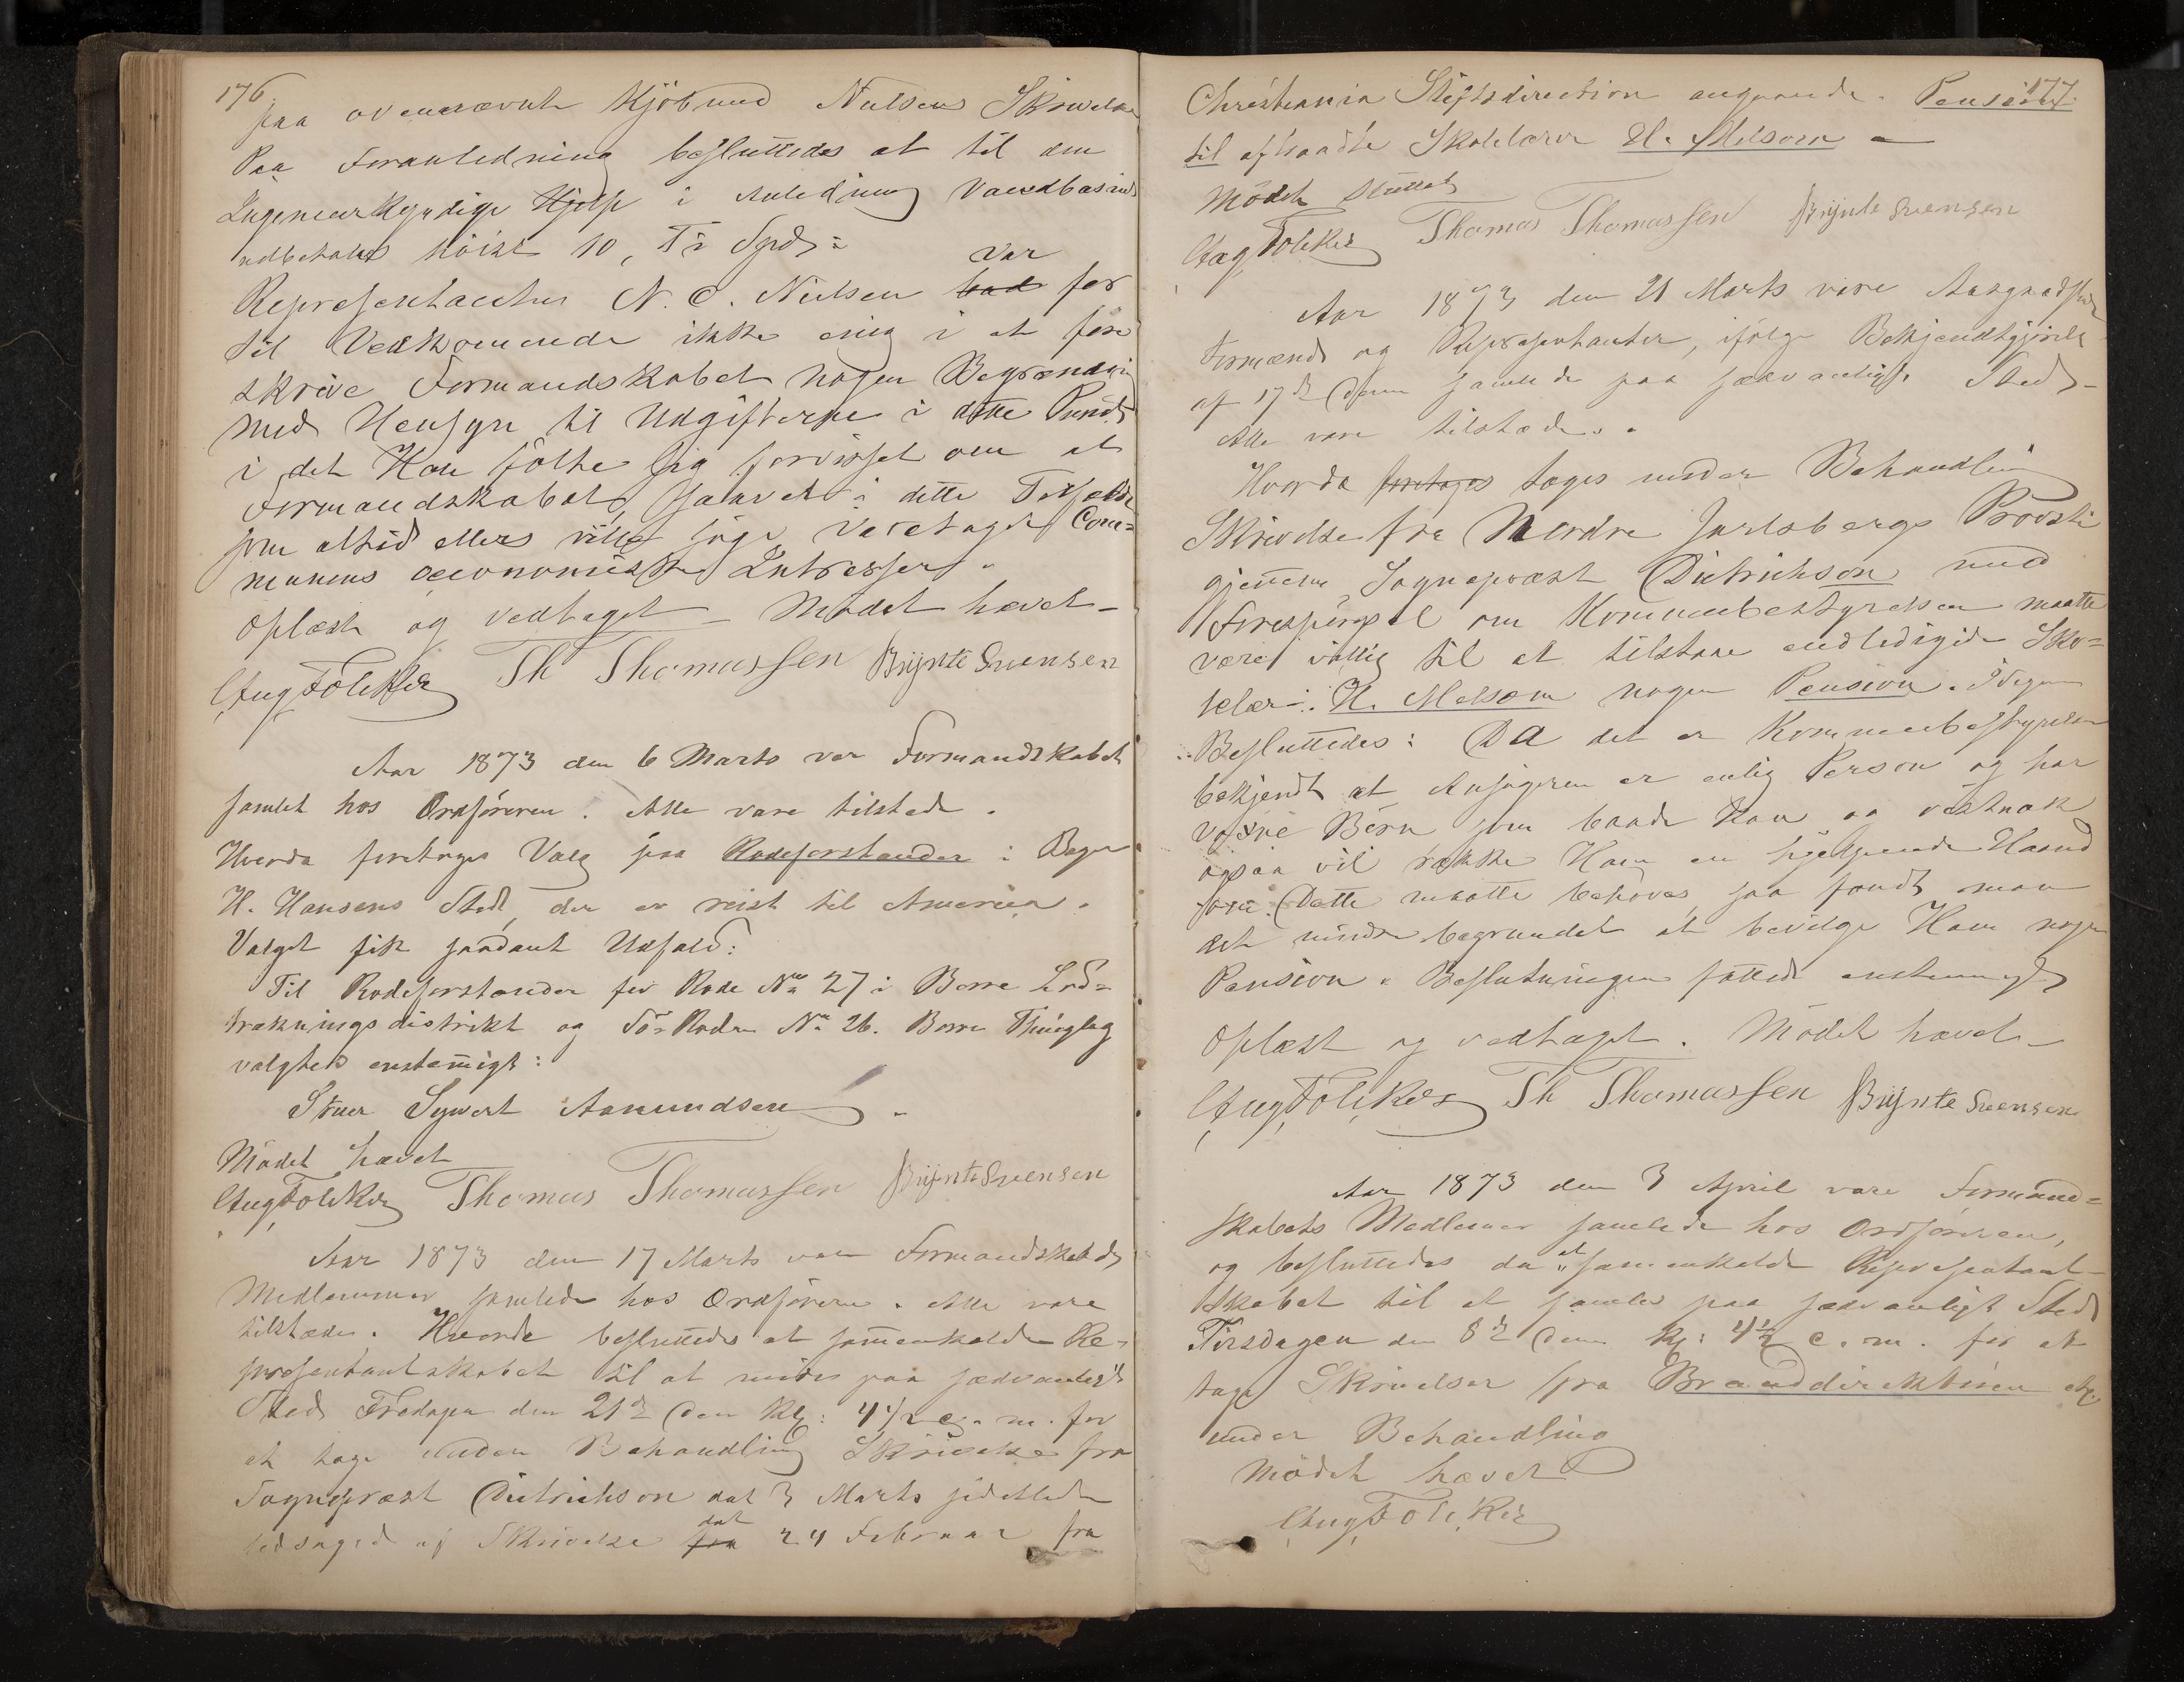 176
paa ovennævnte Kjöbmand Nielsens Skrivelse
Paa Foranledning besluttedes at til den
Ingenieurkyndige Hjelp i Anledning Vandbasinet
udbetales höist 10, Ti Spd:
Repræsentanten N. C. Nielsen bad var for
sit Vedkommende ikke enig i at fore
skrive Formandskabet nogen Begrænding
med Hensyn til Udgifterne i dette Punct
i det Han fölte sig forvisset om at
Formandskabet, saavel i dette Tilfælde
som altid ellers ville söge varetaget Com=
munens oeconomiske Intresser.
Oplæst og vedtaget – Mödet hævet –
Aug Foliker Th Thomassen Brynte Svensen
Aar 1873 den 6 Marts var Formandskabet
samlet hos Ordföreren. Alle vare tilstede.
Hvorda foretoges Valg paa Rodeforstander i Bager
H. Hansens Sted, der er reist til America.
Valget fik saadant Udfald:
Til Rodeforstander for Rode No 27 i Borre Lod=
trækningsdistrikt og Sö-Roden No 26. Borre Thinglag
valgtes enstemigt:
Struer Sywert Aanundsen.
Mödet hævet
Aug Foliker Thomas Thomassen Brynte Svensen
Aar 1873 den 17 Marts vare Formandskabets
Medlemmer samlede hos Ordföreren. Alle vare
tilstæde. Hvorda besluttedes at sammenkalde Re-
præsentantskabet til at mödes paa sædvanligt
Sted Fredagen den 21de dem Kl: 4 1/2 e. m. for
at tage under Behandling Skrivelse fra
Sognepræst Dietrichson dat 3 Marts sidstleden
ledsaget af Skrivelse fra dat 24 Februar fra
177
Christiania Stiftsdirection angaaende Pension
til aftraadte Skolelærer H. Melsom –
Mödet sluttet
Aug Foliker Thomas Thomassen Brynte Svensen
Aar 1873 den 21 Marts vare Aasgaardstrands
Formænd og Repræsentanter, ifölge Bekjendtgjörelse
af 17de dem samlede paa sædvanligt Sted –
Alle vare tilstæde.
Hvorda foretoges toges under Behandling
Skrivelse fra Nordre Jarlsbergs Provsti
gjennem Sognepræst Dietrichson med
Forespörgsel om Kommunebestyrelsen maatte
være villig til at tilstaae endledigede Sko=
lelær: H. Melsom nogen Pension.
Besluttedes: Da det er Kommunebestyrelsen
bekjendt at Ansögeren er enlig Person og har
voxne Börn som baade kan og vistnok
ogsaa vil række Ham en hjelpende Haand
Dette maatte behöves, saa fandt man
det mindre begrundet at bevilge Ham nogen
Pension. Beslutningen fattedes enstemmigt
Oplæst og vedtaget. Mödet hævet –
Aug Foliker Th Thomassen Brynte Svensen
Aar 1873 den 3 April vare Formand=
skabets Medlemmer samlede hos Ordföreren,
og besluttedes da at sammenkalde Repræsentant
skabet til at samles paa sædvanligt Sted
Tirsdagen den 8de dem Kl: 4 1/2 e. m. for at
tage Skrivelser fra Branddirektören etc
under Behandling
Mödet hævet
Aug Foliker